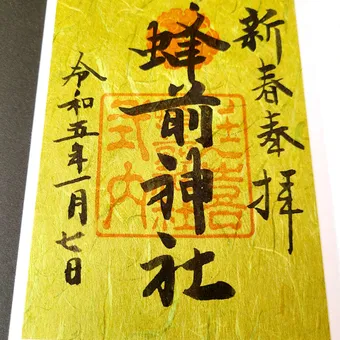 新春奉拝
蜂前神社
令和五年一月七日